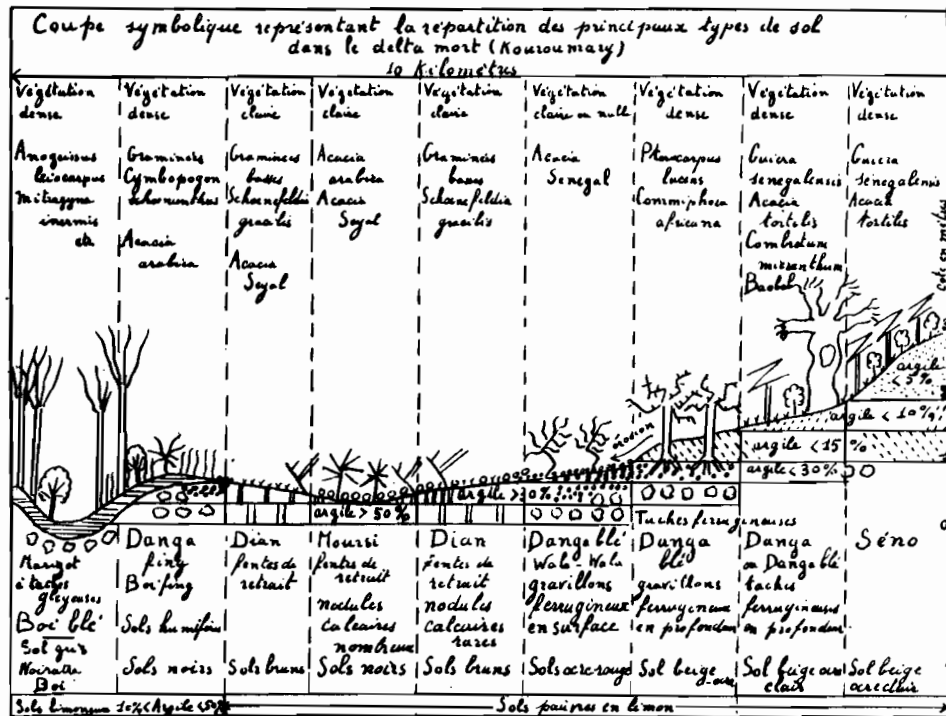 Coupe symbolique représentant la répartition des principaux types de sol
dans le delta mort (Kouroumary)
10 Kilomètres
Végétation
dense
Anogeissus
leiocarpus
Mitragyna
inermis
etc
Végétation
dense
Graminées
Cymbopogon
Schoenanthus
Acacia
arabica
Végétation
claire
Graminées
basses
Schoenefeldia
gracilis
Acacia
Seyal
Végétation
claire
Acacia
arabica
Acacia
Seyal
Végétation
claire
Graminées
basses
Schoenefeldia
gracilis
Végétation
claire ou nulle
Acacia
Senegal
Végétation
dense
Pterocarpus
lucens
Commiphora
africana
Végétation
dense
Guiera
senegalensis
Acacia
tortilis
Combretum
micranthum
Baobab
Végétation
dense
Guiera
senegalensis
Acacia
tortilis
Cote en mètres
érosion
argile
< 5%
argile < 10%
argile < 15 %
argile < 30%
argile > 30%
argile > 50%
Taches ferrugineuses
Marigot
à taches
gleyeuses
Boi blé
Sol gris
Noiratre
Boi
Danga
fing
Boi fing
Sols humifères
Sols noirs
Dian
fentes de
retrait
Sols bruns
Moursi
fentes de
retrait
nodules
calcaires
nombreux
Sols noirs
Dian
fentes de
retrait
nodules
calcaires
rares
Sols bruns
Danga blé
Walo-Walo
gravillons
ferrugineux
en surface
Sols ocre rouge
Danga
blé
gravillons
ferrugineux
en profondeur
Sol beige
ocre
Danga
ou Danga blé
taches
ferrugineuses
en profondeur
Sol beige ocre
clair
Séno
Sol beige
ocre clair
Sols limoneux 10%<Argile<50%
Sols pauvres en limon